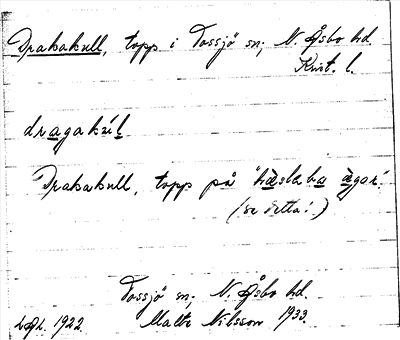 Drakakull, topp i Tossjö sn; N. Åsbo hd.
Krist. l.
dragakúl
Drakakull, topp på
(se detta!)
Tossjö sn; N. Åsbo hd.
1922. Malte Nilsson 1933.